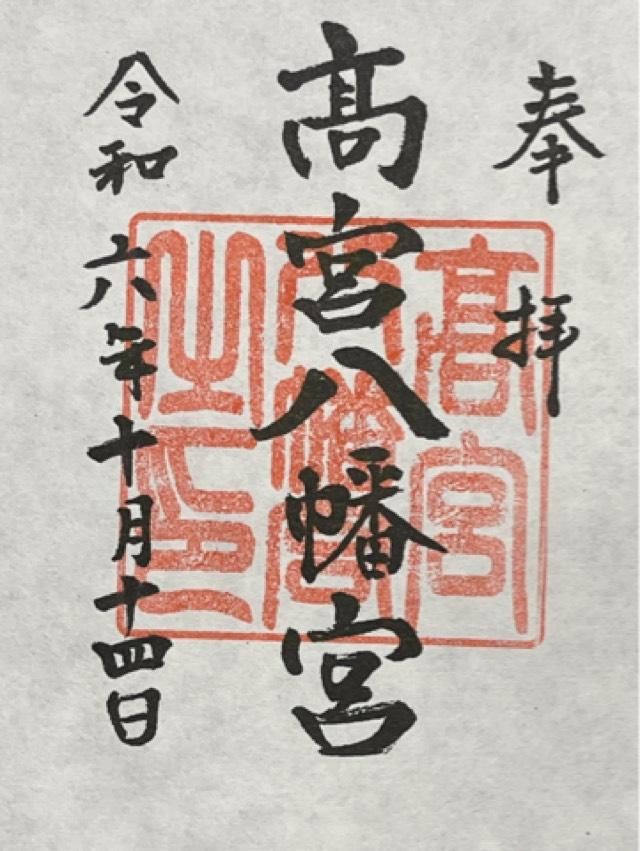 奉拝
髙宮八幡宮
令和六年十月十四日
髙宮
八幡宮
之印